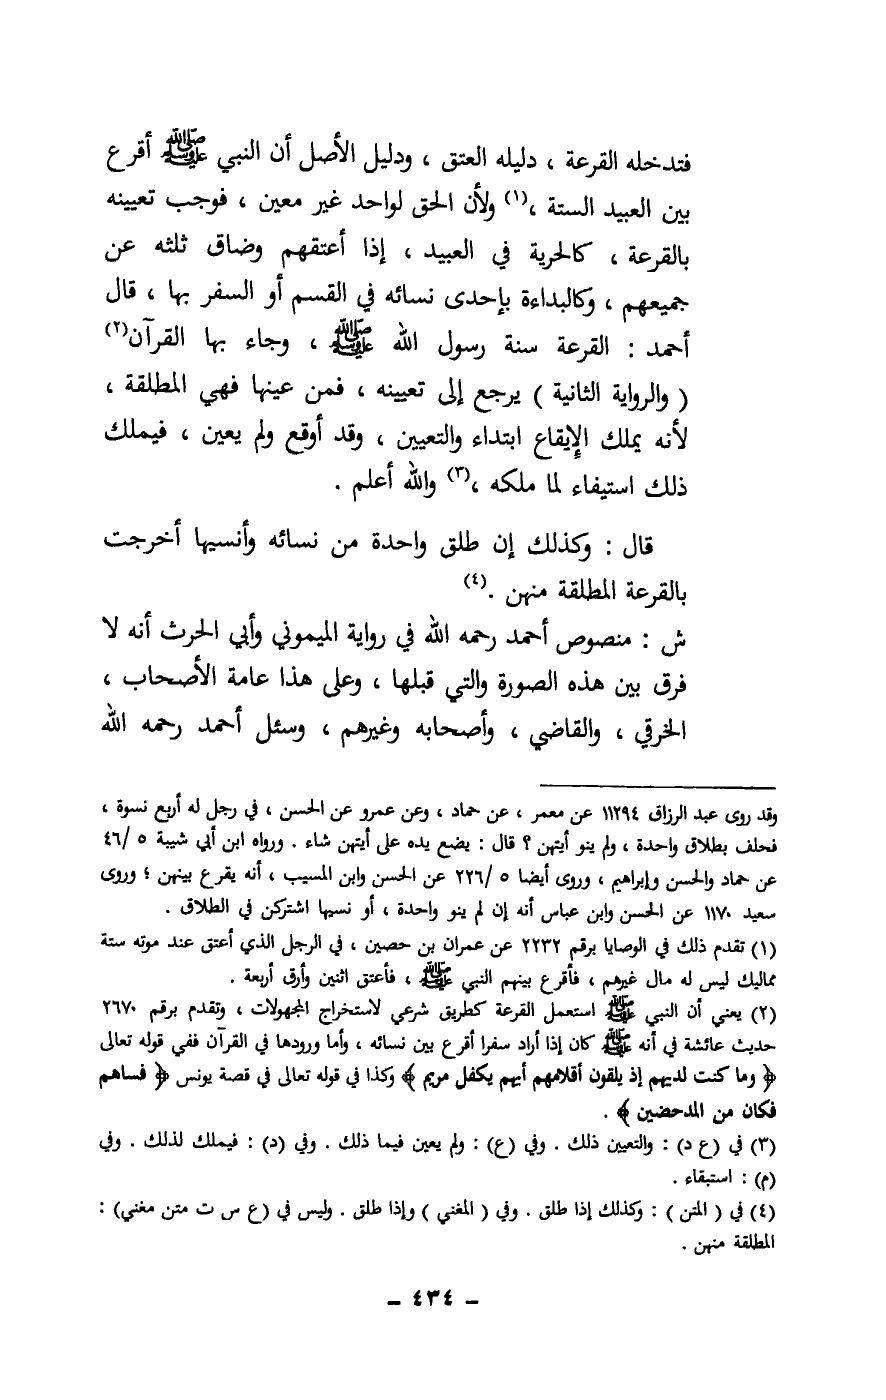 فتدخله القرعة ، دليله العتق ، ودليل الأصل أن النبي ﷺ أقرع
بين العبيد الستة ،(١) ولأن الحق لواحد غير معين ، فوجب تعيينه
بالقرعة ، كالحرية في العبيد ، إذا أعتقهم وضاق ثلثه عن
جميعهم ، وكالبداءة بإحدى نسائه في القسم أو السفر بها ، قال
أحمد : القرعة سنة رسول الله ﷺ ، وجاء بها القرآن(٢)
( والرواية الثانية ) يرجع إلى تعيينه ، فمن عينها فهي المطلقة ،
لأنه يملك الإيقاع ابتداء والتعيين ، وقد أوقع ولم يعين ، فيملك
ذلك استيفاء لما ملكه ،(٣) والله أعلم .
قال : وكذلك إن طلق واحدة من نسائه وأنسيها أخرجت
بالقرعة المطلقة منهن .(٤)
ش : منصوص أحمد رحمه الله في رواية الميموني وأبي الحرث أنه لا
فرق بين هذه الصورة والتي قبلها ، وعلى هذا عامة الأصحاب ،
الخرقي ، والقاضي ، وأصحابه وغيرهم ، وسئل أحمد رحمه الله
وقد روى عبد الرزاق ١١٢٩٤ عن معمر ، عن حماد ، وعن عمرو عن الحسن ، في رجل له أربع نسوة ،
فحلف بطلاق واحدة ، ولم ينو أيتهن ؟ قال : يضع يده على أيتهن شاء . ورواه ابن أبي شيبة ٥ /٤٦
عن حماد والحسن وإبراهيم ، وروى أيضا ٥ /٢٢٦ عن الحسن وابن المسيب ، أنه يقرع بينهن ؛ وروى
سعيد ١١٧٠ عن الحسن وابن عباس أنه إن لم ينو واحدة ، أو نسيها اشتركن في الطلاق .
(١) تقدم ذلك في الوصايا برقم ٢٢٣٢ عن عمران بن حصين ، في الرجل الذي أعتق عند موته ستة
مماليك ليس له مال غيرهم ، فأقرع بينهم النبي ﷺ ، فأعتق اثنين وأرق أربعة .
(٢) يعني أن النبي ﷺ استعمل القرعة كطريق شرعي لاستخراج المجهولات ، وتقدم برقم ٢٦٧٠
حديث عائشة في أنه ﷺ كان إذا أراد سفرا أقرع بين نسائه ، وأما ورودها في القرآن ففي قوله تعالى
﴿ وما كنت لديهم إذ يلقون أقلامهم أيهم يكفل مريم ﴾ وكذا في قوله تعالى في قصة يونس ﴿ فساهم
فكان من المدحضين ﴾ .
(٣) في (ع د) : والتعيين ذلك . وفي (ع) : ولم يعين فيما ذلك . وفي (د) : فيملك لذلك . وفي
(م) : استبقاء .
(٤) في ( المتن ) : وكذلك إذا طلق . وفي ( المغني ) وإذا طلق . وليس في (ع س ت متن مغني) :
المطلقة منهن .
– ٤٣٤ –